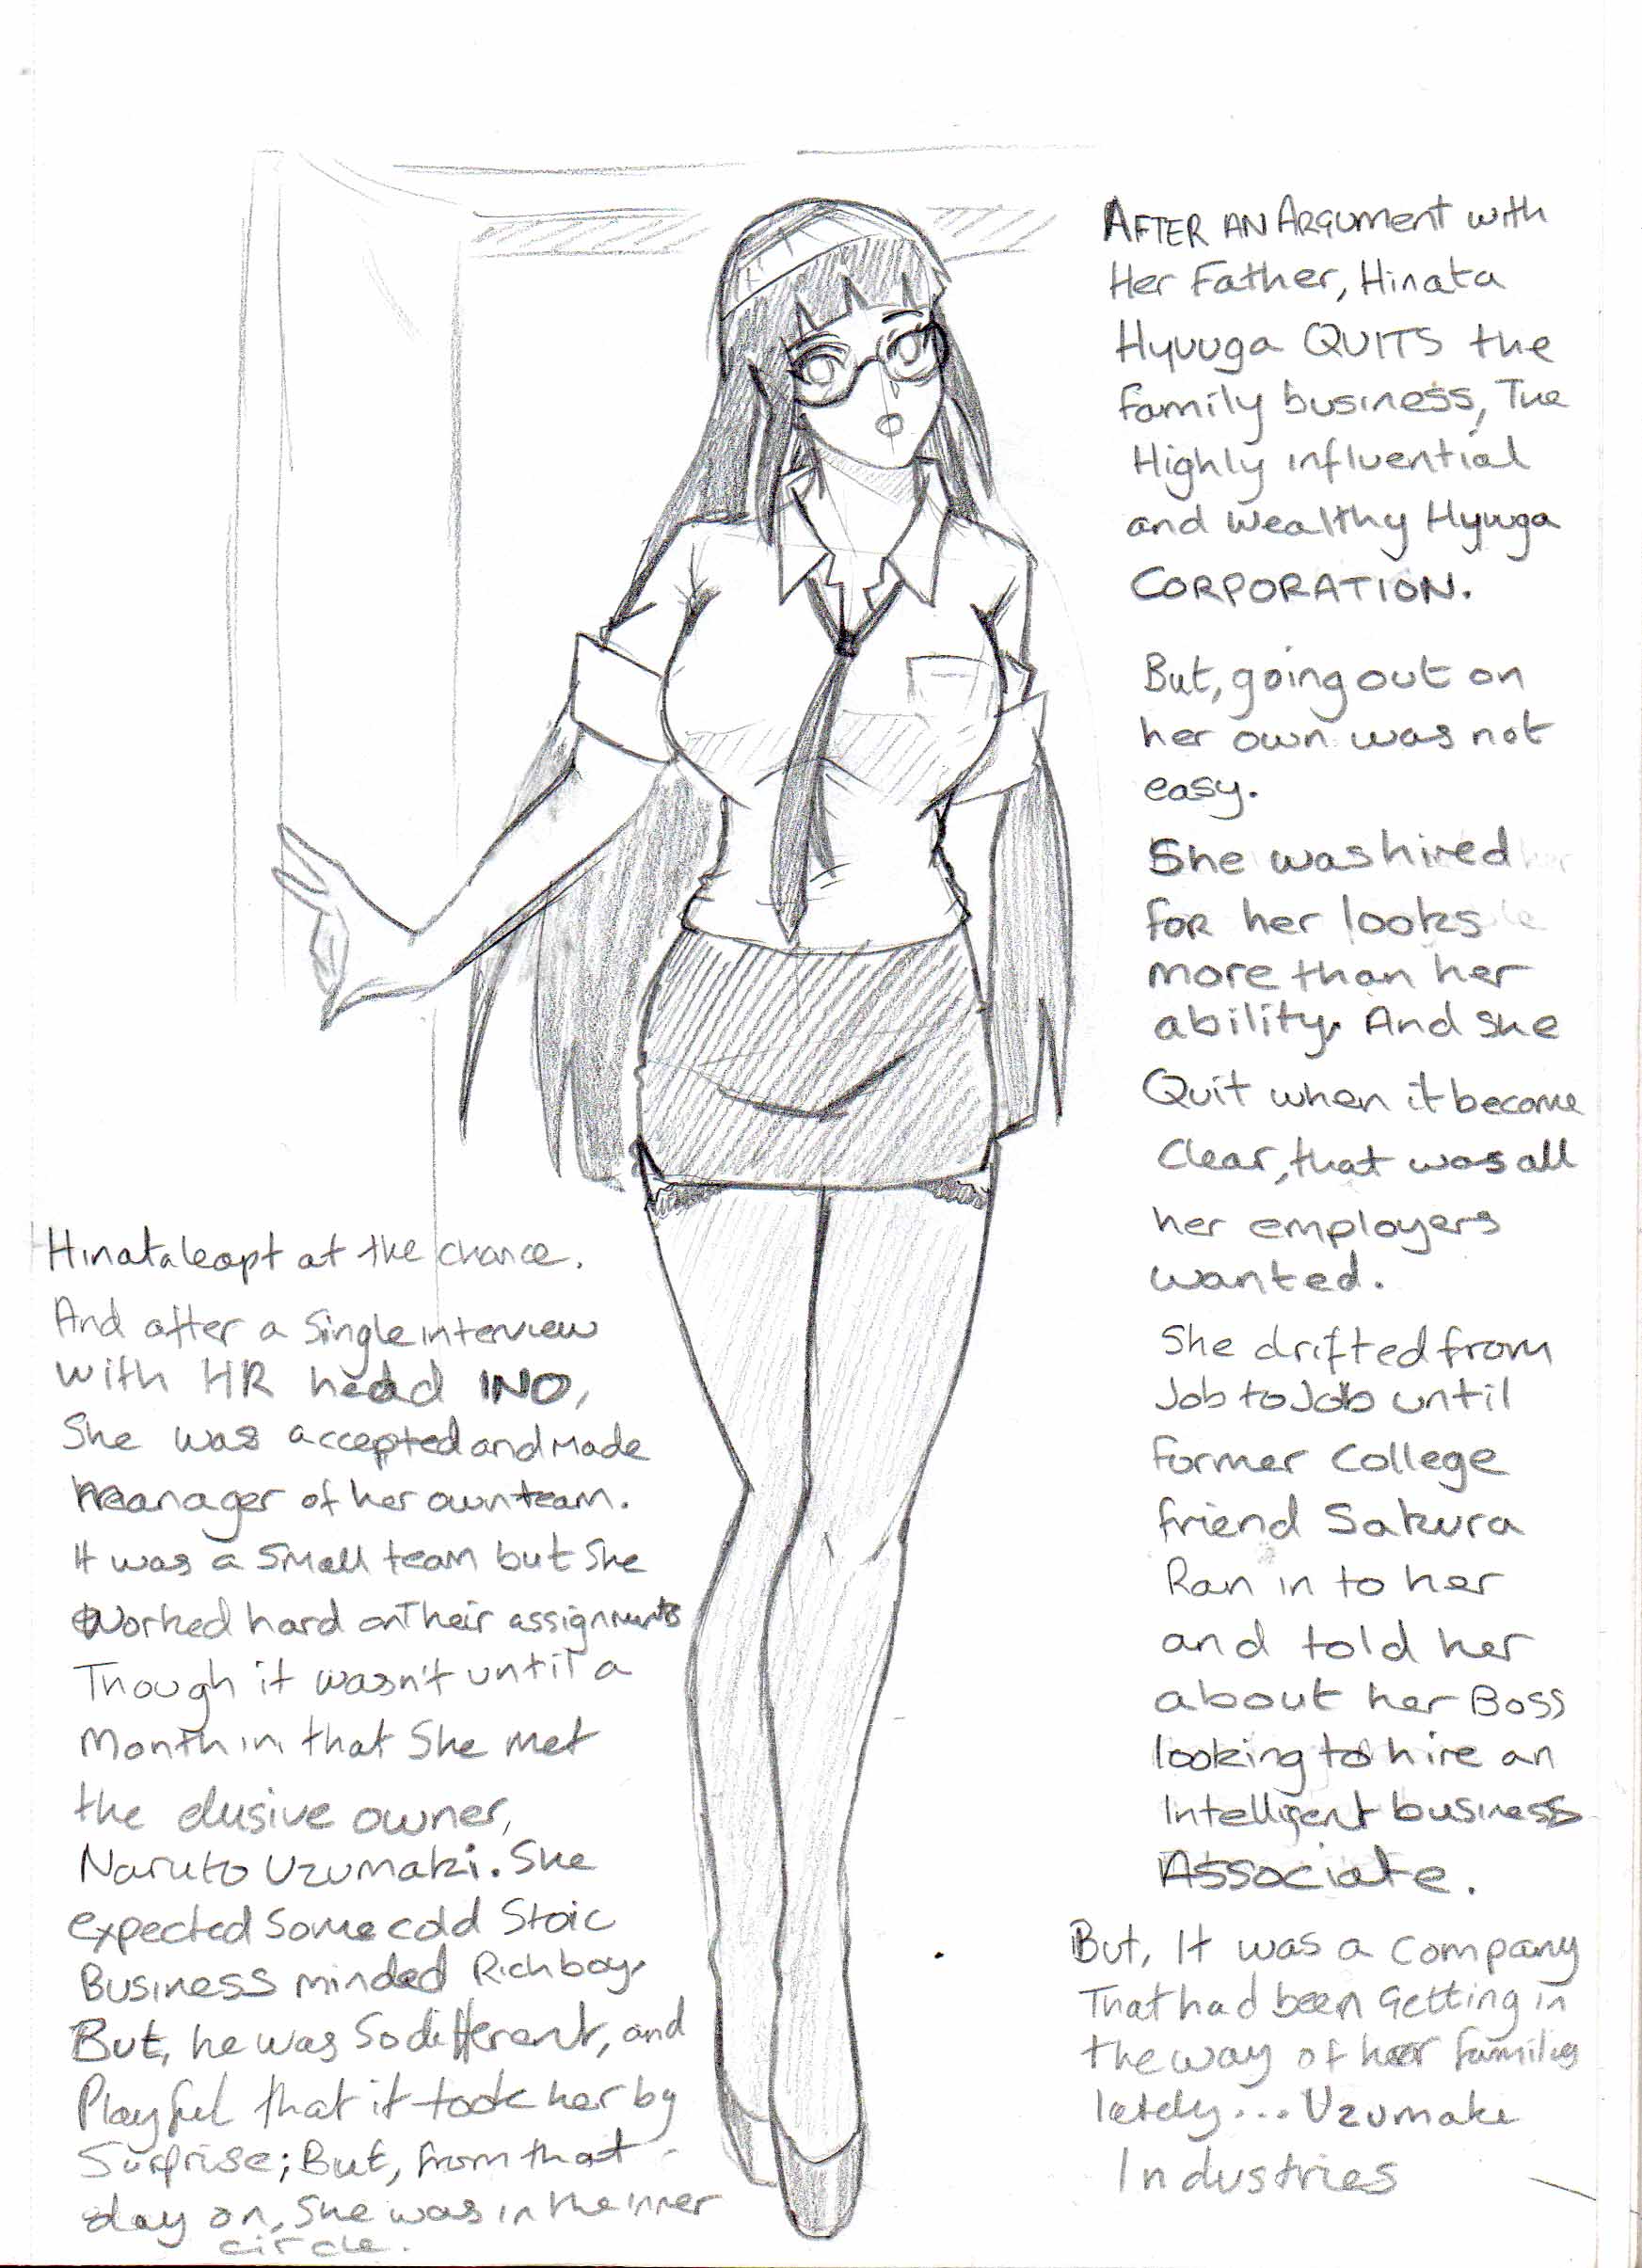 AFTER AN ARGUMENT with
Her Father, Hinata
Hyuuga QUITS the
family business, The
Highly influential
and wealthy Hyuuga
CORPORATION.
But, going out on
her own was not
easy.
She was hired
for her looks
more than her
ability. And she
Quit when it became
Clear, that was all
her employers
wanted.
She drifted from
Job to Job until
former College
friend Sakura
Ran in to her
and told her
about her Boss
looking to hire an
Intelligent business
Associate.
But, It was a company
That had been Getting in
the way of her families
lately... Uzumaki
Industries
Hinata leapt at the chance.
And after a single interview
with HR head INO,
She was accepted and Made
Manager of her own team.
It was a small team but she
Worked hard on Their assignments
Though it wasn't until a
Month in that She met
the elusive owner,
Naruto Uzumaki. She
expected some cold Stoic
Business minded Rich boy.
But, he was So different, and
Playful that it took her by
Surprise; But, from that
day on, She was in the inner
circle.